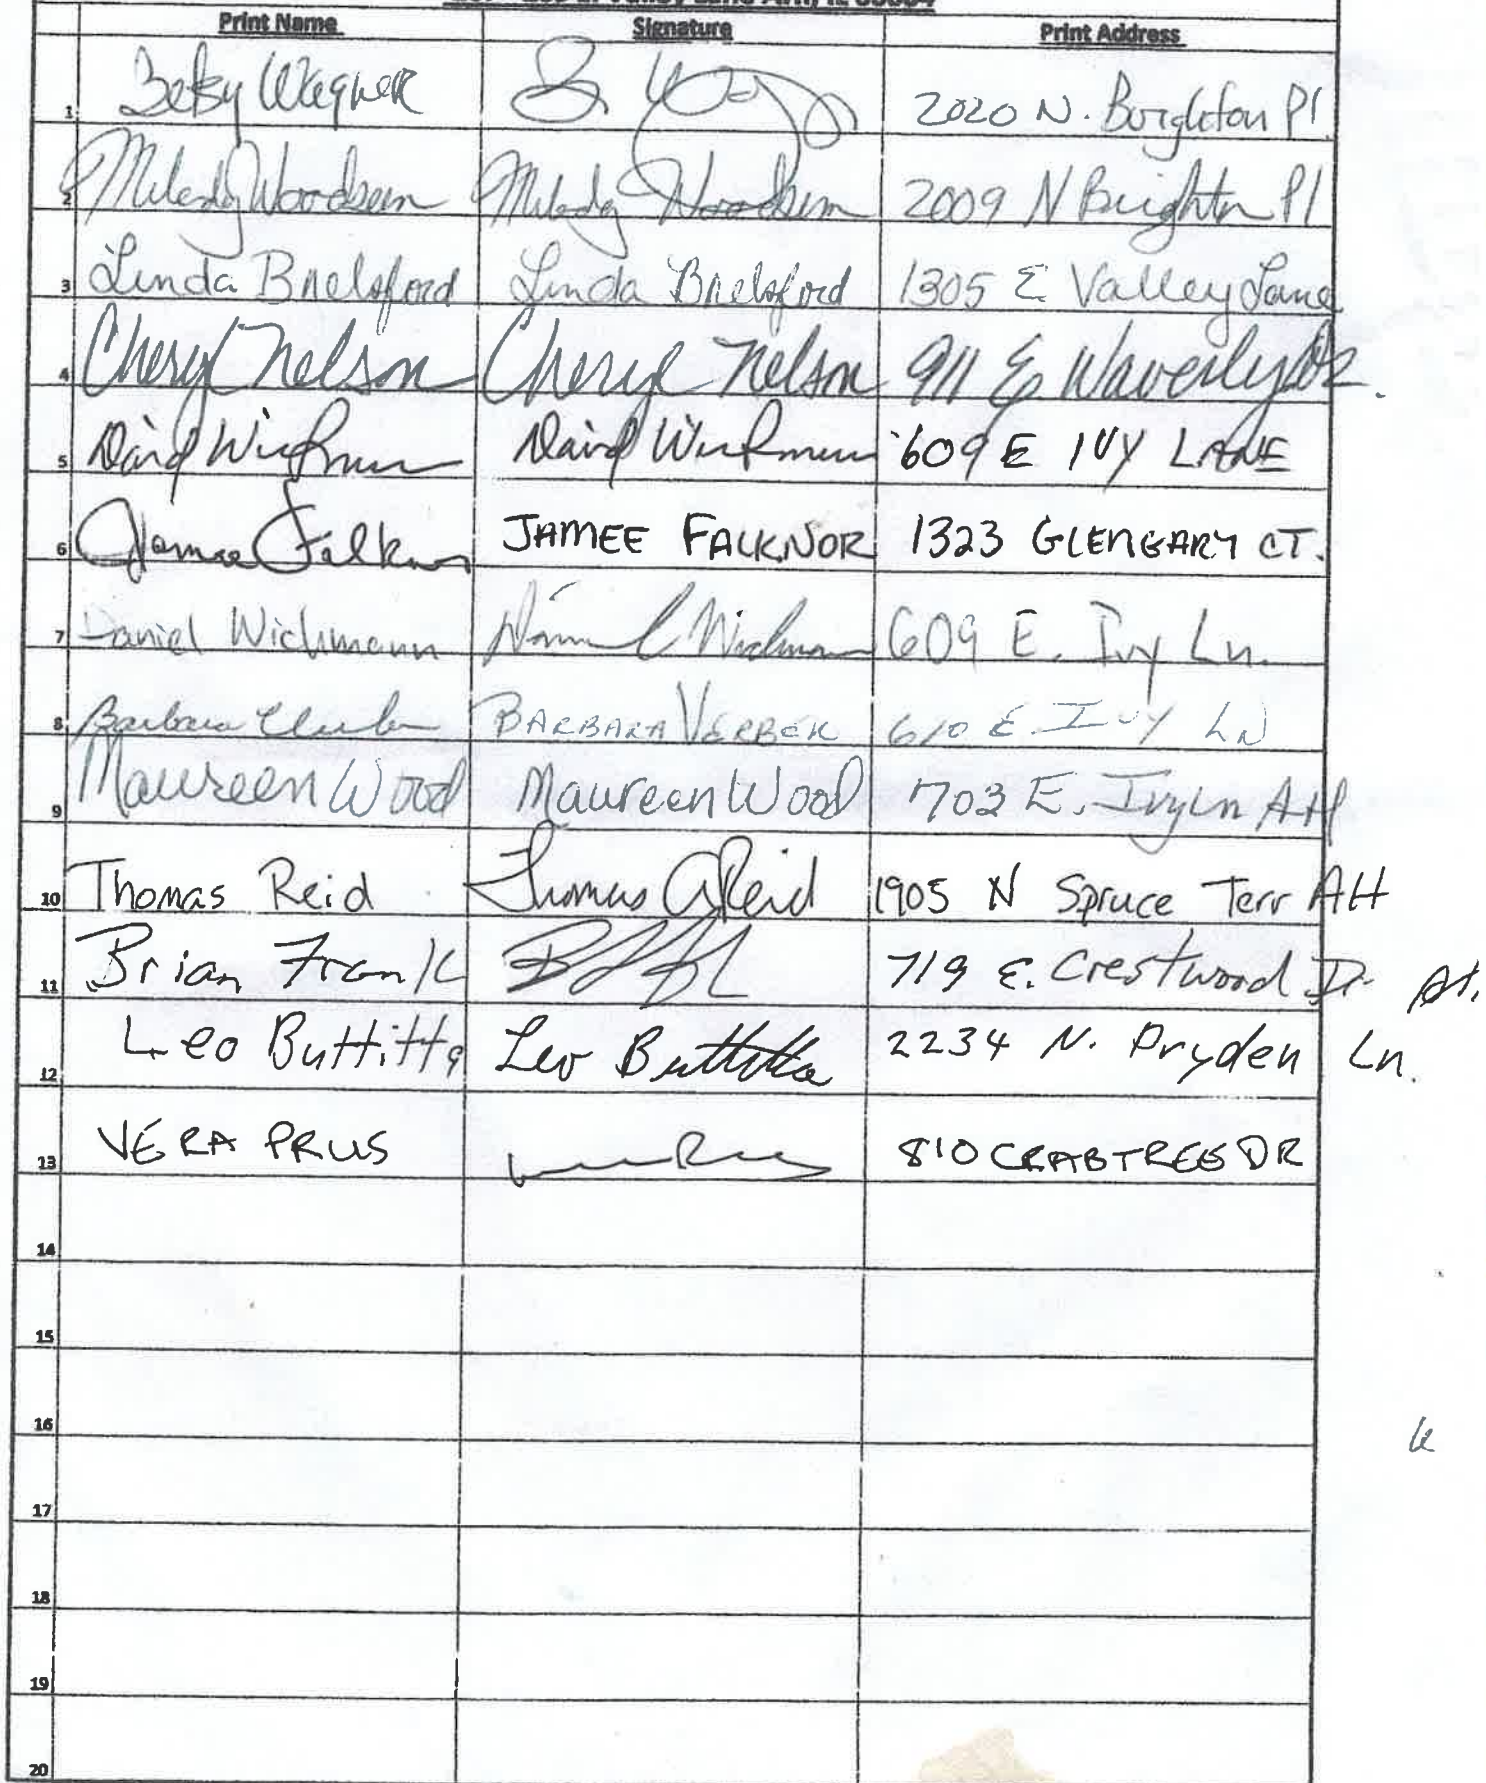 Print Name Signature Print Address
1 Betsy Wagner B. Wag 2020 N. Burghton Pl
2 Milady Woodsum Milady Woodsum 2009 N Brighton Pl
3 Linda Brelsford Linda Brelsford 1305 E Valley Lane
4 Cheryl Nelson Cheryl Nelson 911 E Waverly Dr.
5 David Wichmann David Wichmann 609 E IVY LANE
6 Jamee Falknor JAMEE FALKNOR 1323 GLENGARY CT.
7 Daniel Wichmann Daniel Wichmann 609 E. Ivy Ln.
8 Barbara BARBARA VERBEK 610 E. IVY LN
9 Maureen Wood Maureen Wood 703 E. Ivy Ln AH
10 Thomas Reid Thomas A Reid 1905 N Spruce Terr AH
11 Brian Frank 719 E. Crestwood Dr AH.
12 Leo Buttitta Leo Buttitta 2234 N. Dryden Ln.
13 VERA PRUS 810 CRABTREE DR
14
15
16
17
18
19
20